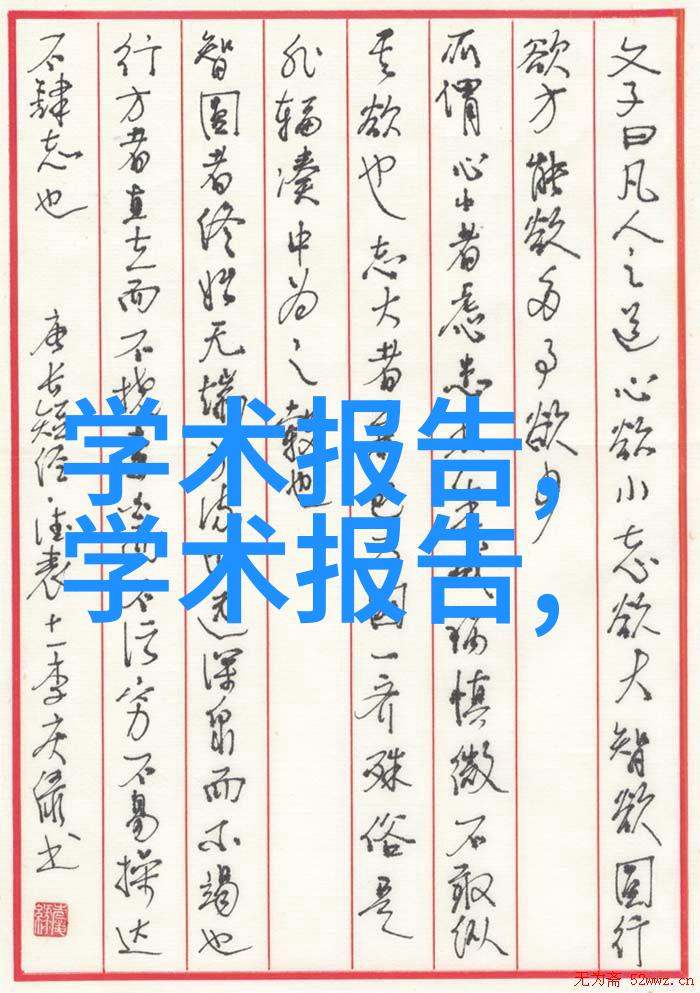 文子曰凡人之道心欲小志欲大智欲圆行
欲方能欲多事欲少
所谓心小者虑患未生戒祸慎微不敢纵
其欲也志大者兼包万国一齐殊俗是
非辐凑中为之毂也
智圆者终始无端方流四远深泉而不竭也
行方者直立而不挠素白而不污穷不易操达
不肆志也 唐长短经·德表十一李庆绿书
学术报告,
学术报告,
无为斋 52wwz.cn